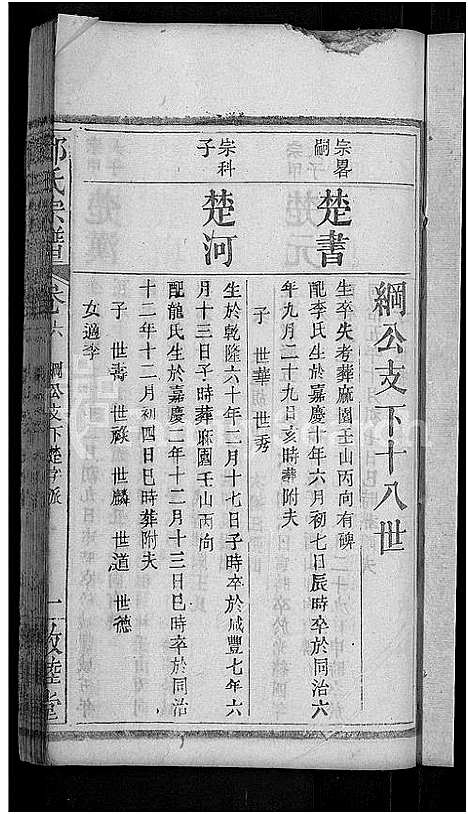 綱公支下十八世
宗畧嗣子
楚書
生卒失考葬麻園壬山丙向有碑
配李氏生於嘉慶十年六月初七日辰時卒於同治六
年九月二十九日亥時葬附夫
子 世華 世秀
宗科子
楚河
生於乾隆六十年二月十七日子時卒於咸豐七年六
月十三日子時葬麻園壬山丙向
配龍氏生於嘉慶二年十二月十三日巳時卒於同治
十二年十二月初四日巳時葬附夫
子 世壽 世祿 世麟 世道 世德
女適李
氏宗譜 卷六 綱公支下楚字派 一 敦睦堂